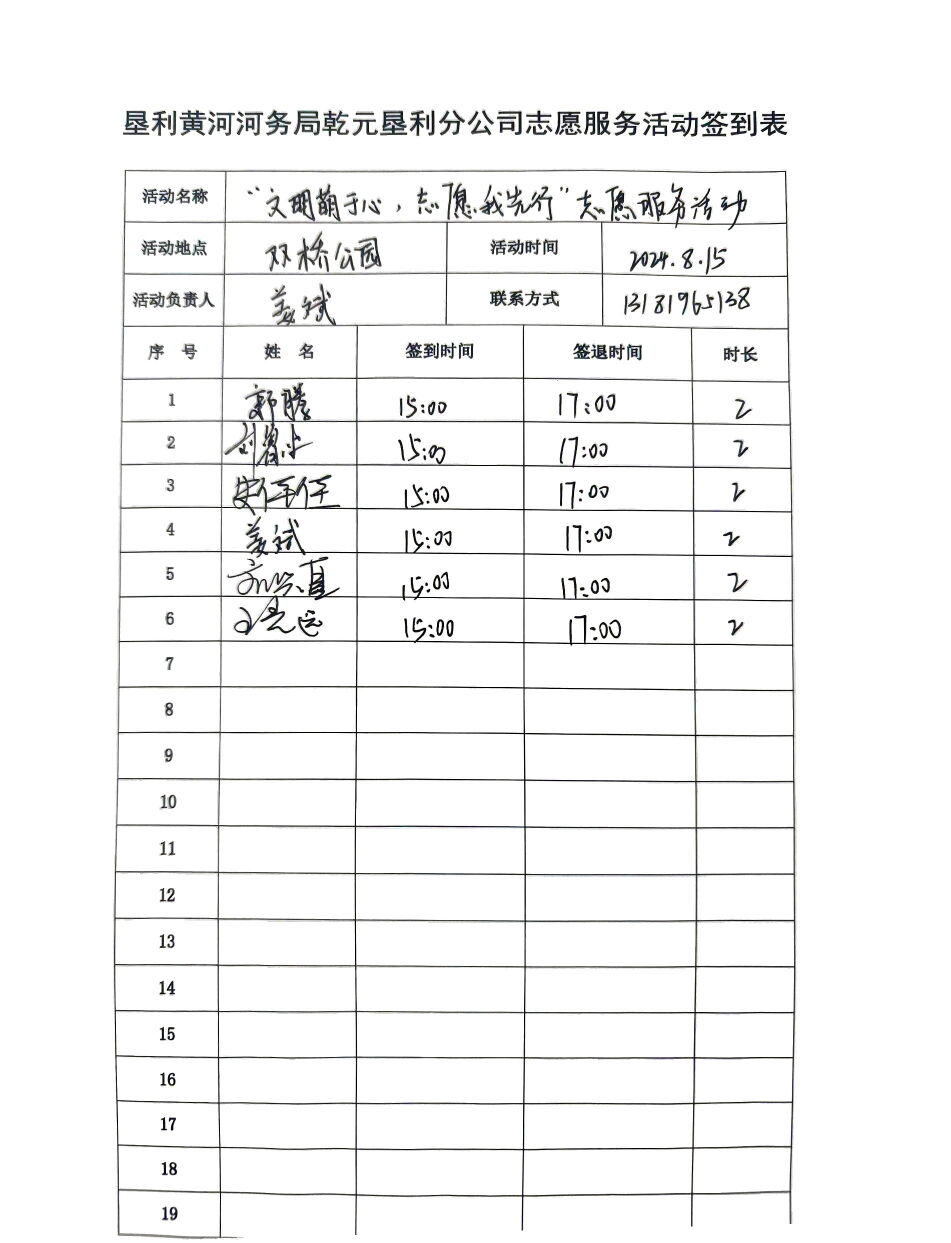 垦利黄河河务局乾元垦利分公司志愿服务活动签到表
活动名称 “文明萌于心，志愿我先行”志愿服务活动
活动地点 双桥公园 活动时间 2024.8.15
活动负责人 姜斌 联系方式 13181965138
序 号 姓 名 签到时间 签退时间 时长
1 郭腾 15:00 17:00 2
2 15:00 17:00 2
3 15:00 17:00 2
4 姜斌 15:00 17:00 2
5 15:00 17:00 2
6 15:00 17:00 2
7
8
9
10
11
12
13
14
15
16
17
18
19